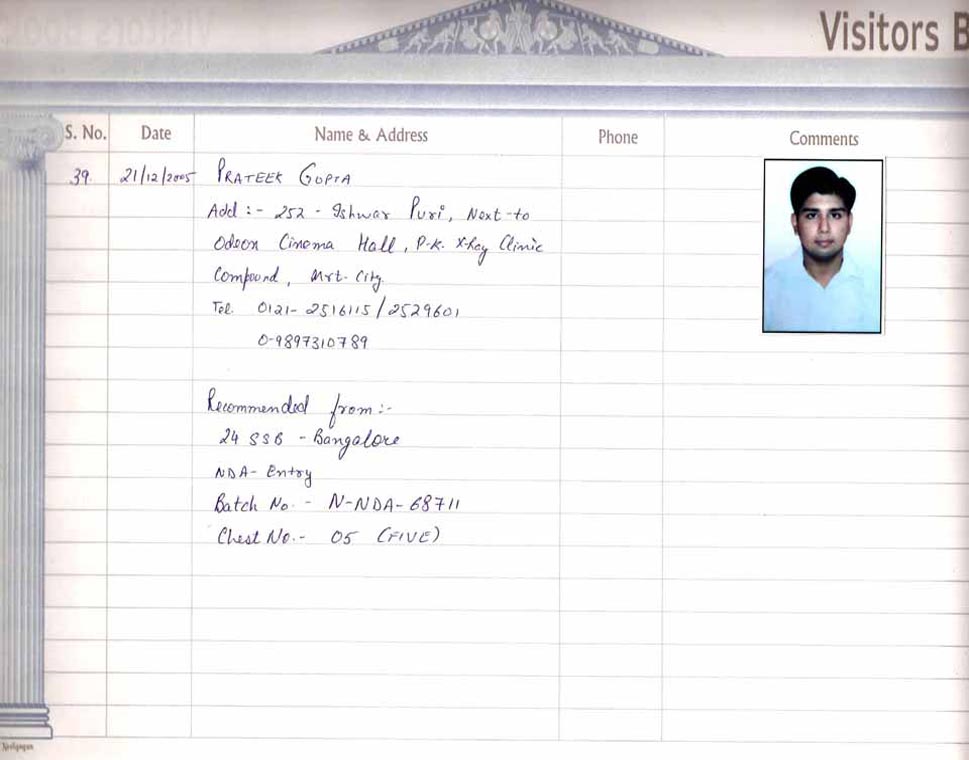 Visitors B
S. No. Date Name & Address Phone Comments
39. 21/12/2005 PRATEEK GUPTA
Add :- 252 - Ishwar Puri, Next-to
Odeon Cinema Hall, P.K. X-Ray Clinic
Compound, Mrt. City.
Tel. 0121- 2516115 / 2529601
0-9897310789
Recommended from:-
24 SSB - Bangalore
NDA- Entry
Batch No. - N-NDA-68711
Chest No.- 05 (FIVE)
Neelgagan